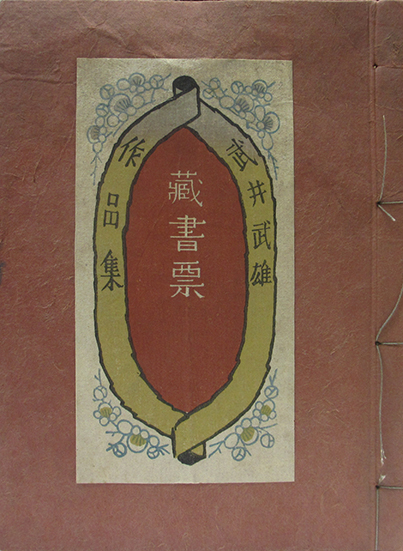 武井武雄
藏書票
作品集